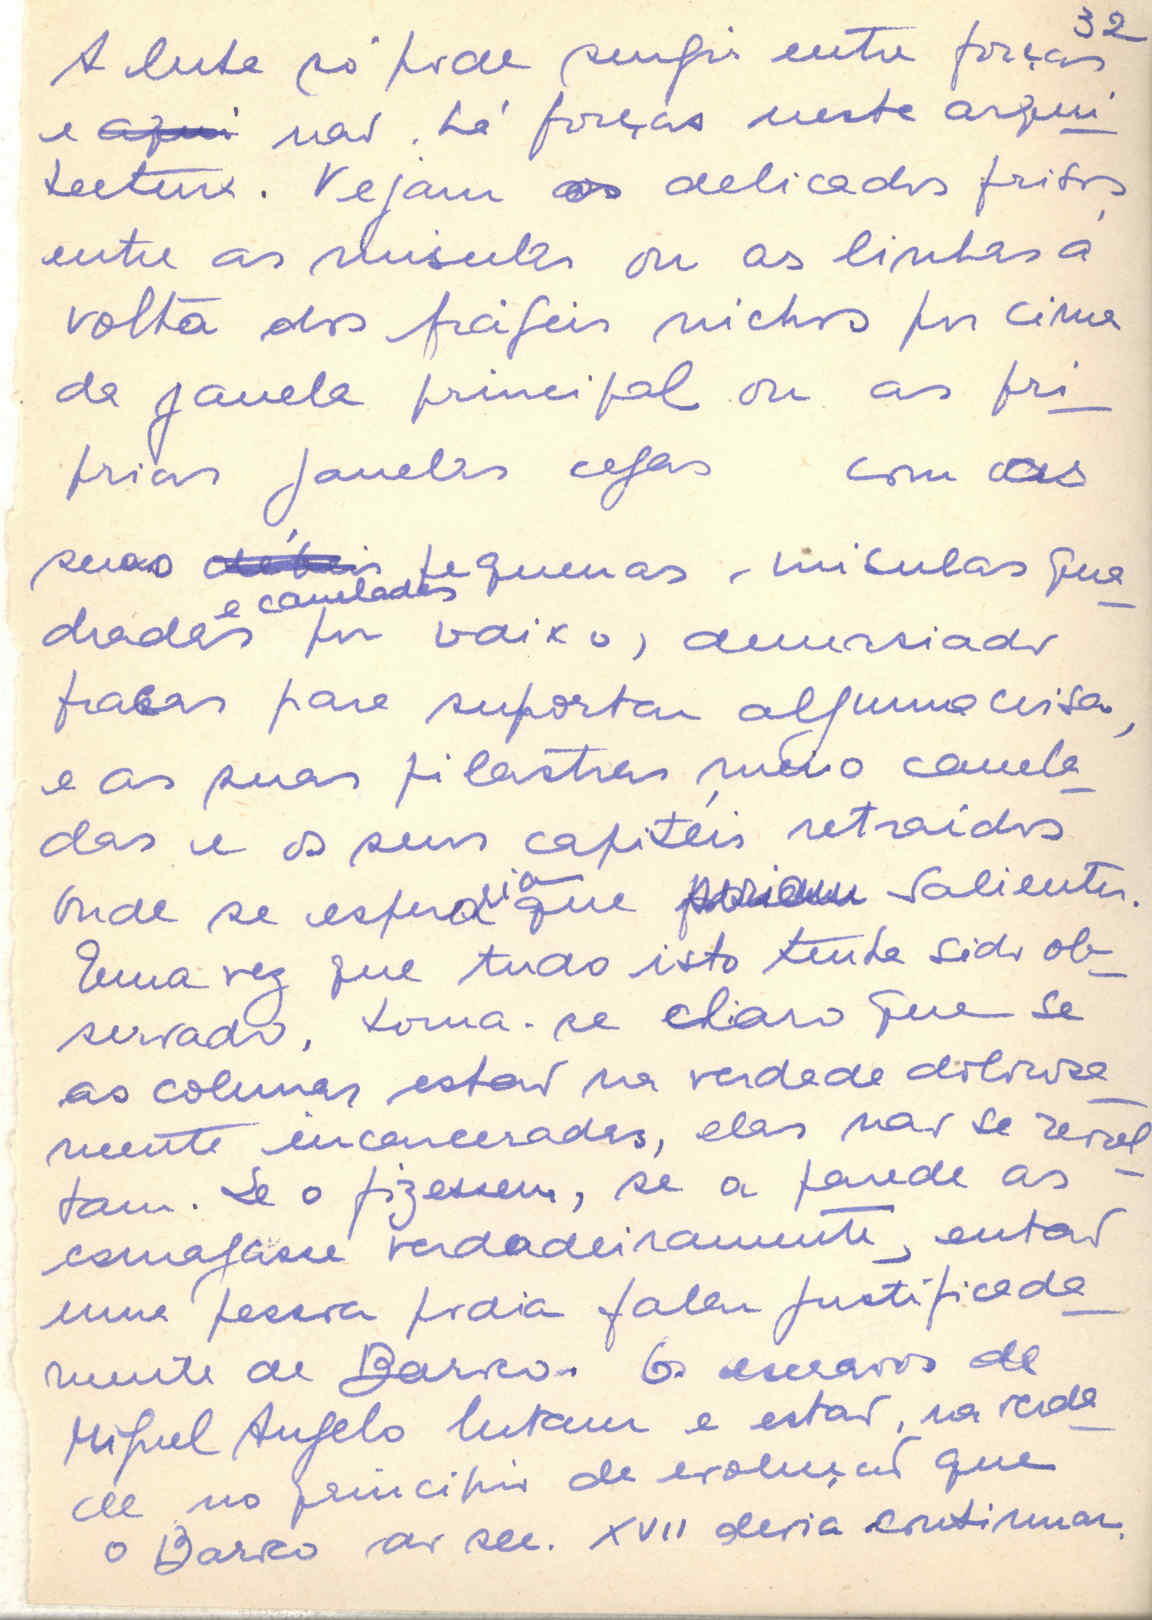 32
A luta só pode surgir entre forças
e aqui não há forças neste arqui
tectura. Vejam os delicados frisos
entre as mísulas ou as linhas à
volta dos frágeis nichos por cima
da janela principal ou as pró
prias janelas cegas com as
suas débeis pequenas mísulas qua
dradas e caneladas por baixo, demasiado
fracas para suportar alguma coisa,
e as suas pilastras, meio canela
das e os seus capitéis retraídos
onde se esperaria que seriam salientes.
Uma vez que tudo isto tenha sido ob-
servado, torna-se claro que se
as colunas estão na verdade dolorosa
mente encarceradas, elas não se revol
tam. Se o fizessem, se a parede as
esmagasse verdadeiramente, então
uma pessoa podia falar justificada
mente de Barroco. Os escravos de
Miguel Angelo lutam e estão, na verda
de no princípio da evolução que
o Barroco do séc. XVII devia continuar.